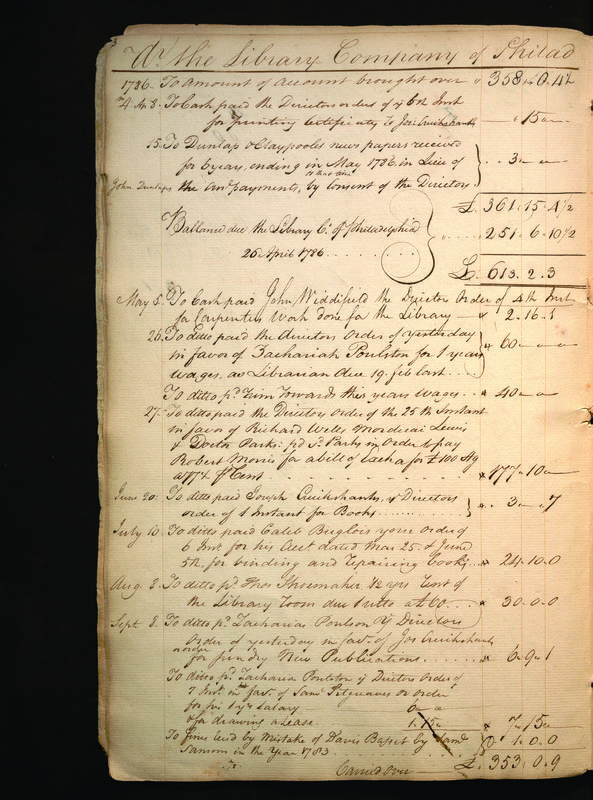 Dr. the Library Company of Philad
1786. To amount of account brought over " 358 - 0. 4½
4 Mo 3. To Cash paid the Directors order of ye 6th Inst
for printing Certificates to Jos: Cruikshank — " 15 —
15. To Dunlap & Claypooles news papers received
for 6 years, ending in May 1786, in Lieu of
John Dunlaps the Ann. payments, by Consent of the Directors } .. 3 — —
£. 361. 15. 4½
Ballance due the Library Co. of Philadelphia
26 April 1786 ........ } .. 251. 6. 10½
£. 613. 2. 3
May 5. To Cash paid John Widdifield the Director Order of 4th Inst
for Carpenters Work done for the Library — " 2. 16. 1
26. To ditto paid the directors Order of yesterday
in favor of Zachariah Poulson for 1 years
Wages, as Librarian due 19. feb last .... } " 60 — —
To ditto pd. him towards this years Wages .. " 40 — —
27. To ditto paid the Directors Order of the 25th Instant
in favor of Richard Wells Mordecai Lewis
& Doctor Parke: pd. Dr. Parke in Order to pay
Robert Morris for a bill of Excha for £100 Stg
a 77½ P Cent. " 177. 10 —
June 20. To ditto paid Joseph Cruikshank, ye Directors
order of 1 Instant for Books ........ } ".. 3 — . 7
July 10. To ditto paid Caleb Buglass your Order of
6 Inst. for his Acct dated Mar. 25. & June
5th. for binding and repairing Books .. " 24. 10. 0
Aug. 3. To ditto pd. Thos Shoemaker ½ Years Rent of
the Library Room due 1 ulto at 60 — " 30. 0. 0
Sept. 8. To ditto pd. Zacharias Poulson ye Directors
Order of yesterday in favr. of Jos Cruikshank
or order
for sundry New Publications ....... " 6. 9. 1
To ditto pd. Zacharia Poulson ye Directors Order of
7 Inst. in favr. of Saml Sitgreaves or order
for his 1 yrs Salary 6 — —
& for drawing a Lease 1. 15 — " 7. 15 —
To fines recd by Mistake of Davis Bassett by Saml
Sansom in the Year 1783. 1. 0. 0
Carried over — £. 353. 0. 9